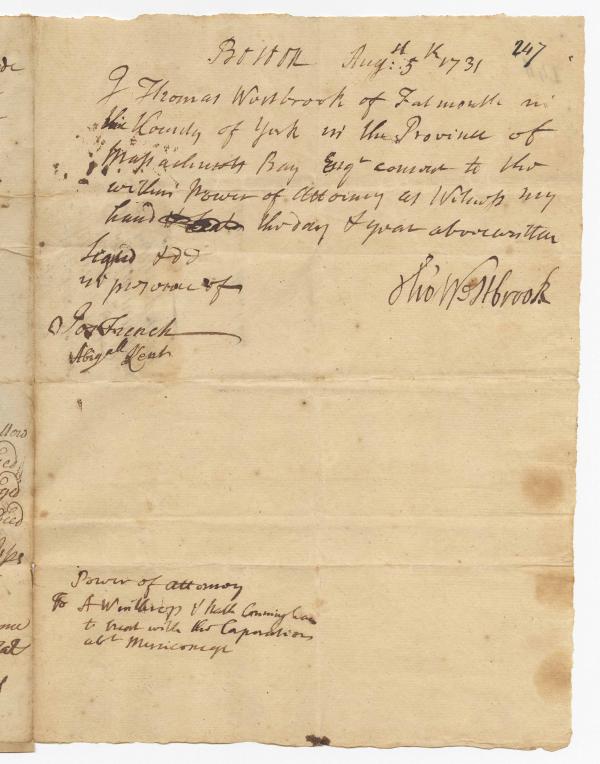 247
Boston Augst: 5th 1731
I Thomas Westbrook of Falmouth in
the County of York in the Province of
Massachusets Bay Esqr consent to the
within Power of Attorney as Witness my
hand the day & year abovewritten
Signd & dd
in presence of
Tho Westbrook
Jos French
Abigall Kent
Power of attorney
To A Winthrop & Nath Conningham
to treat with the Corporations
abt